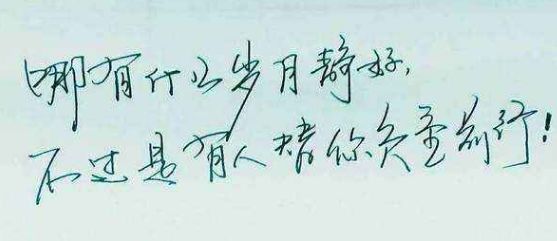 哪有什么岁月静好，
不过是有人替你负重前行！